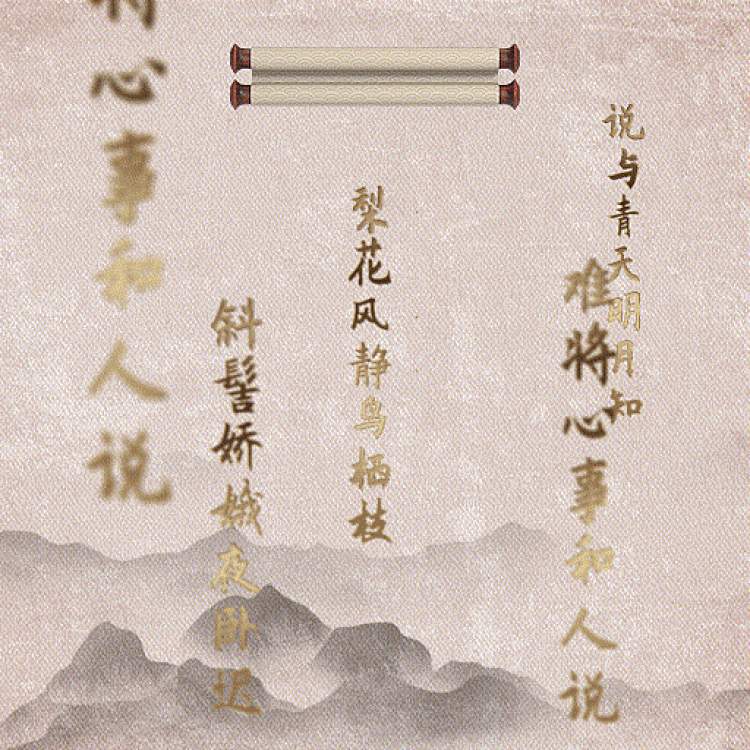 说与青天明月知
难将心事和人说
梨花风静鸟栖枝
斜髻娇娥夜卧迟
将心事和人说